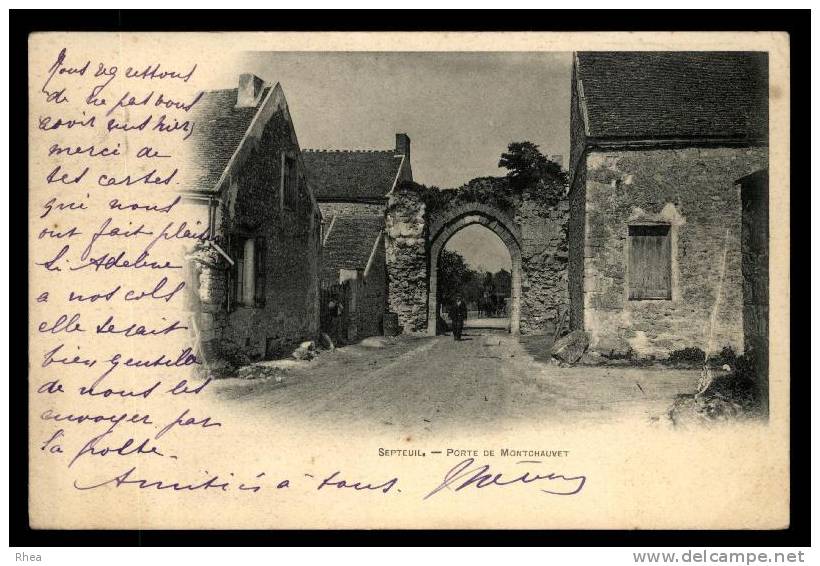 Nous regrettons
de ne pas vous
avoir eus hier,
merci de
tes cartes
qui nous
ont fait plaisir
Si Adeline
a nos cols
elle serait
bien gentille
de nous les
envoyer par
la poste.
Amitiés à tous.
SEPTEUIL. — PORTE DE MONTCHAUVET
Rhea
www.delcampe.net